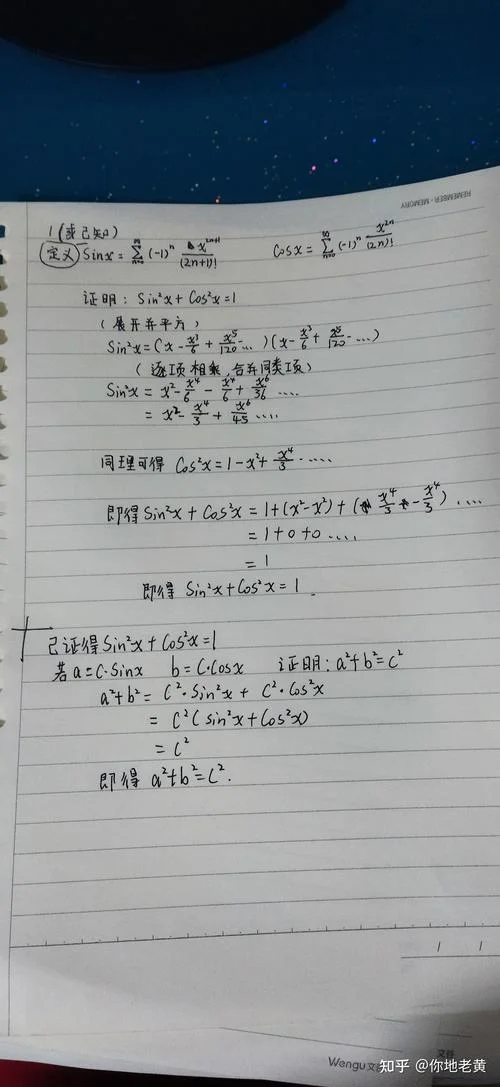 REMEMBER · MEMORY
1(或已知)
定义 Sinx = ∑_{n=0}^{∞} (-1)^n x^{2n+1}/(2n+1)! Cosx = ∑_{n=0}^{∞} (-1)^n x^{2n}/(2n)!
证明: Sin²x + Cos²x = 1
(展开并平方)
Sin²x = (x - x³/6 + x⁵/120 ...)(x - x³/6 + x⁵/120 - ...)
(逐项相乘, 合并同类项)
Sin²x = x² - x⁴/6 - x⁴/6 + x⁶/36 ....
= x² - x⁴/3 + x⁶/45 ....
同理可得 Cos²x = 1 - x² + x⁴/3 .....
即得 Sin²x + Cos²x = 1 + (x² - x²) + (x⁴/3 - x⁴/3) ....
= 1 + 0 + 0 ....
= 1
即得 Sin²x + Cos²x = 1.
已证得 Sin²x + Cos²x = 1
若 a = C·Sinx b = C·Cosx 证明: a² + b² = c²
a² + b² = C²·Sin²x + C²·Cos²x
= C²(sin²x + Cos²x)
= C²
即得 a² + b² = C².
1 1
Wengu 文谷
知乎 @你地老黄